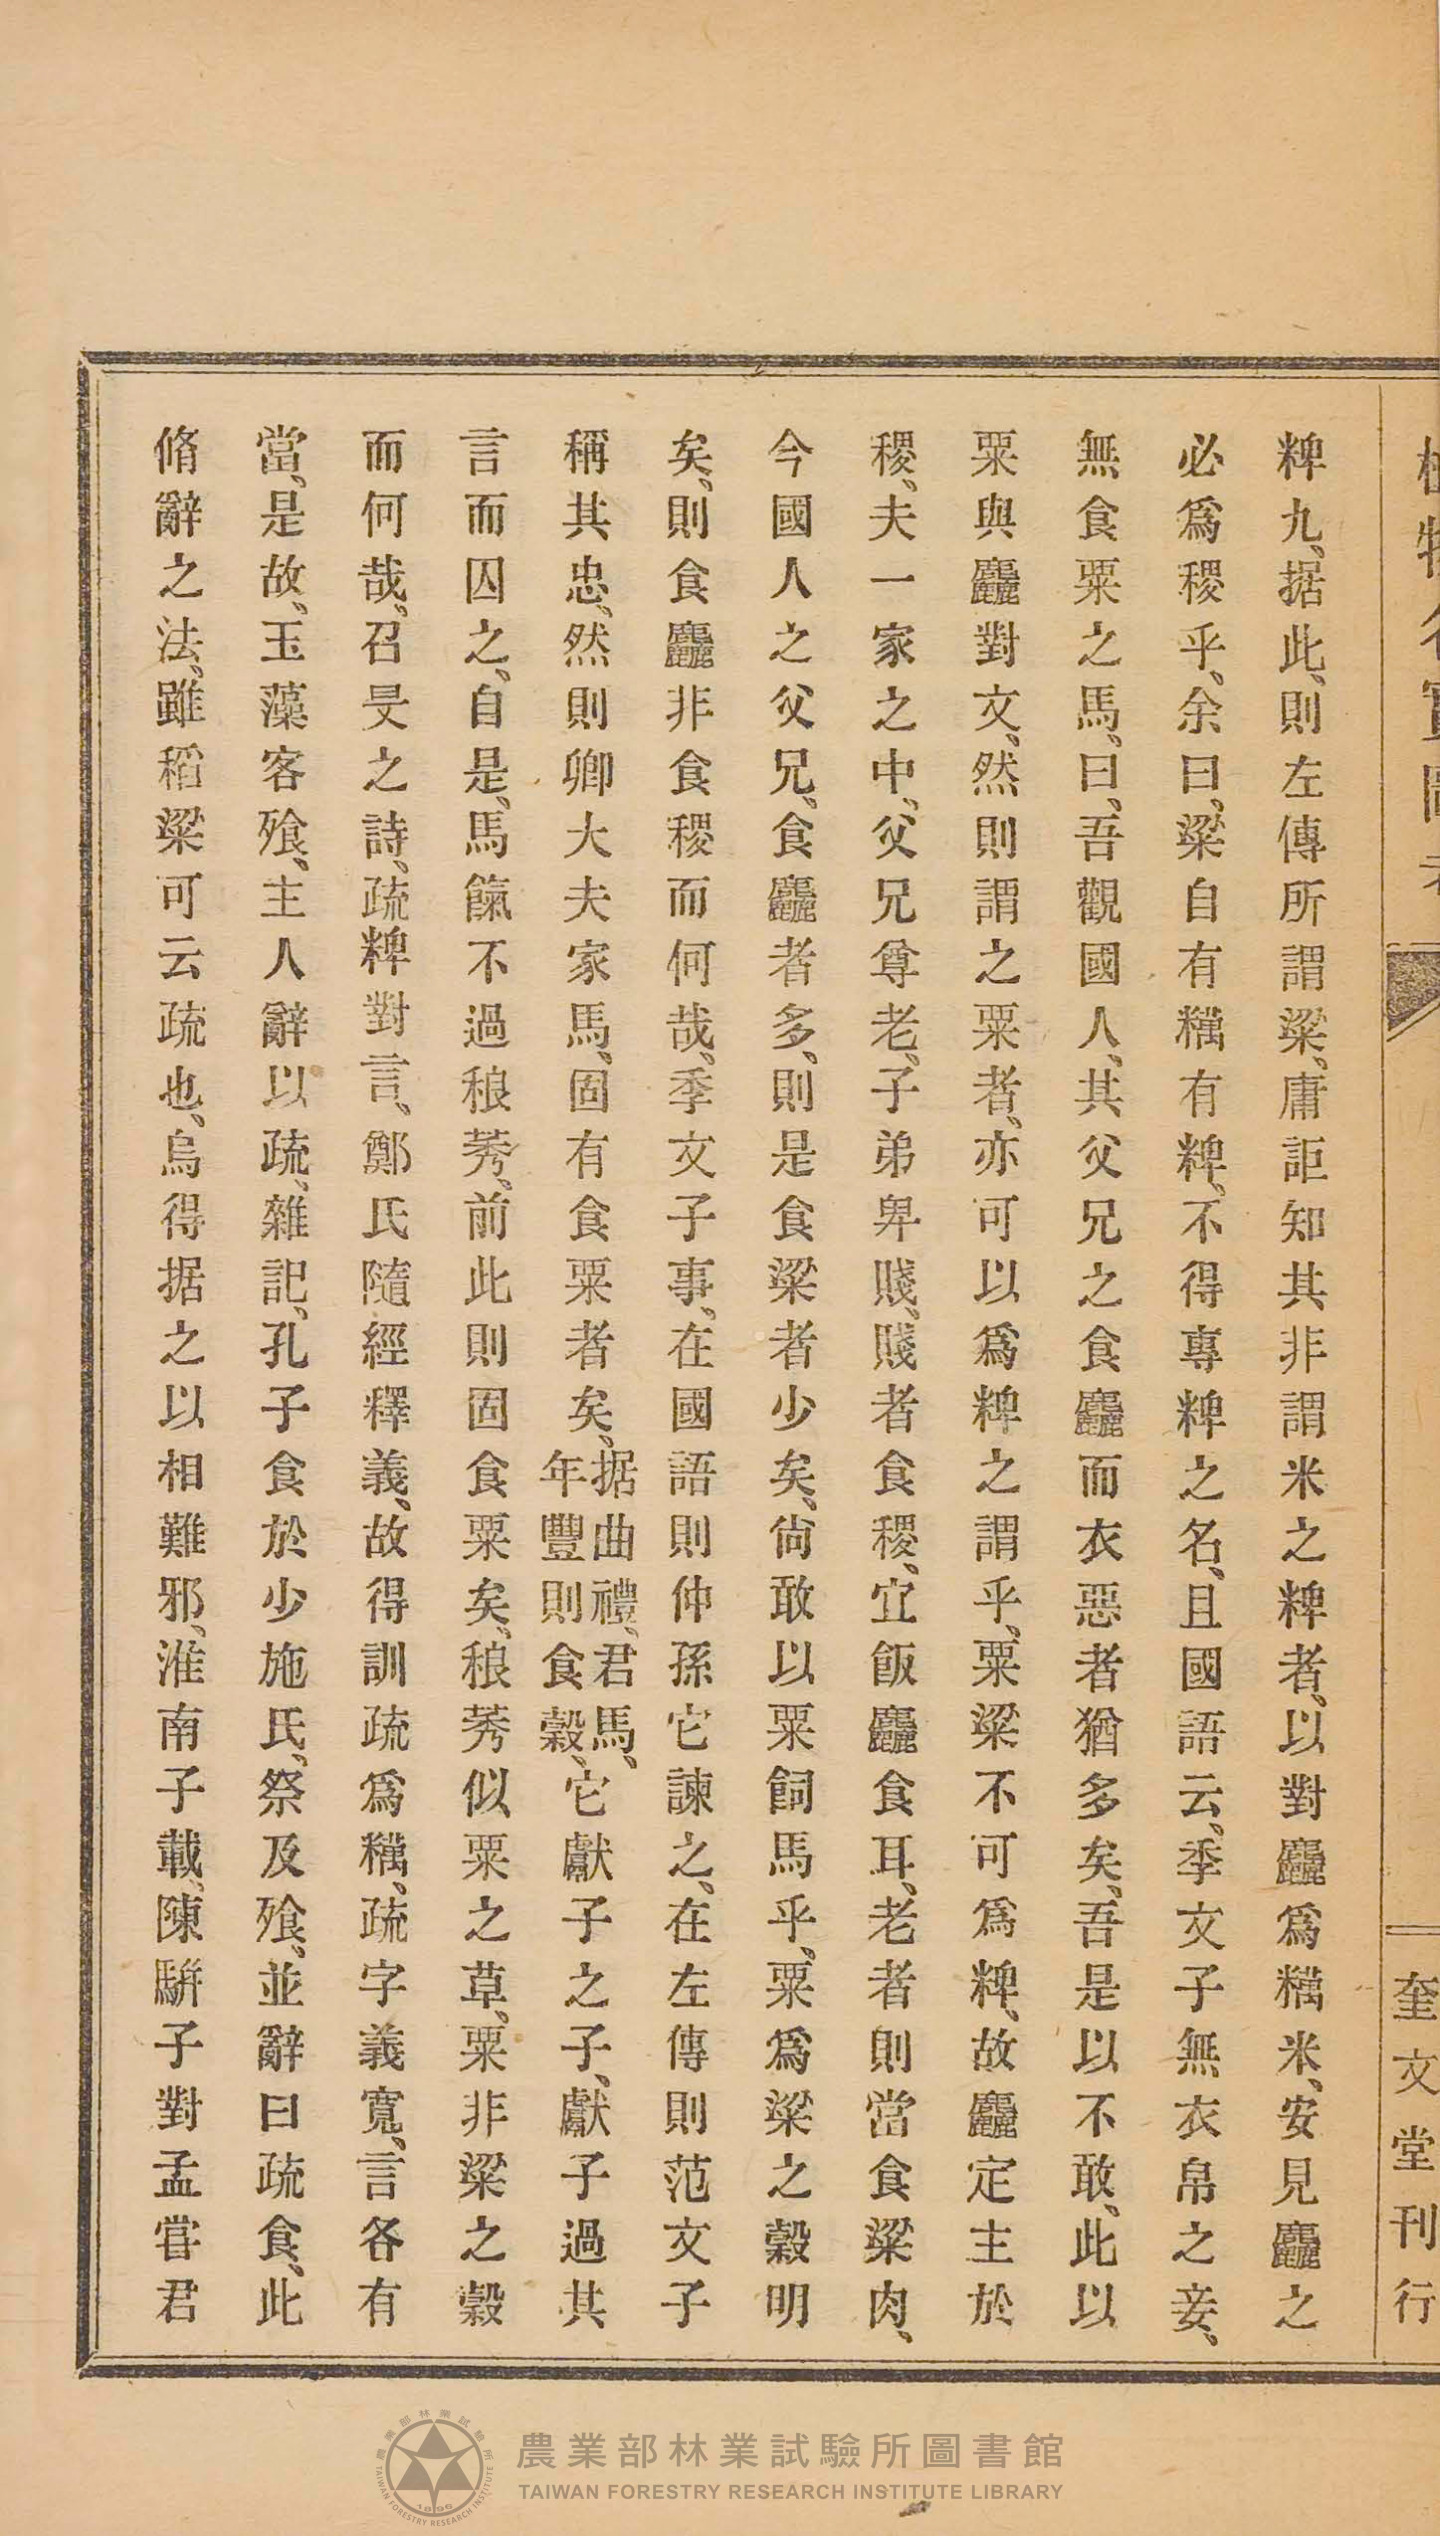 植物名實圖考
奎文堂刊行
粺九、据此、則左傳所謂粱、庸詎知其非謂米之粺者、以對麤爲糲米、安見麤之
必爲稷乎、余曰、粱自有糲有粺、不得專粺之名、且國語云、季文子無衣帛之妾、
無食粟之馬、曰、吾觀國人、其父兄之食麤而衣惡者猶多矣、吾是以不敢、此以
粟與麤對文、然則謂之粟者、亦可以爲粺之謂乎、粟粱不可爲粺、故麤定主於
稷、夫一家之中、父兄尊老、子弟卑賤、賤者食稷、宜飯麤食耳、老者則當食粱肉、
今國人之父兄、食麤者多、則是食粱者少矣、尙敢以粟飼馬乎、粟爲粱之穀明
矣、則食麤非食稷而何哉、季文子事、在國語則仲孫它諫之、在左傳則范文子
稱其忠、然則卿大夫家馬、固有食粟者矣、据曲禮、君馬、年豐則食穀、它獻子之子、獻子過其
言而囚之、自是、馬餼不過稂莠、前此則固食粟矣、稂莠似粟之草、粟非粱之穀
而何哉、召旻之詩、疏粺對言、鄭氏隨經釋義、故得訓疏爲糲、疏字義寬、言各有
當、是故、玉藻客飧、主人辭以疏、雜記、孔子食於少施氏、祭及飧、並辭曰疏食、此
脩辭之法、雖稻粱可云疏也、烏得据之以相難邪、淮南子載、陳騈子對孟嘗君
農業部林業試驗所圖書館
TAIWAN FORESTRY RESEARCH INSTITUTE LIBRARY
農業部林業試驗所
TAIWAN FORESTRY RESEARCH INSTITUTE
1896